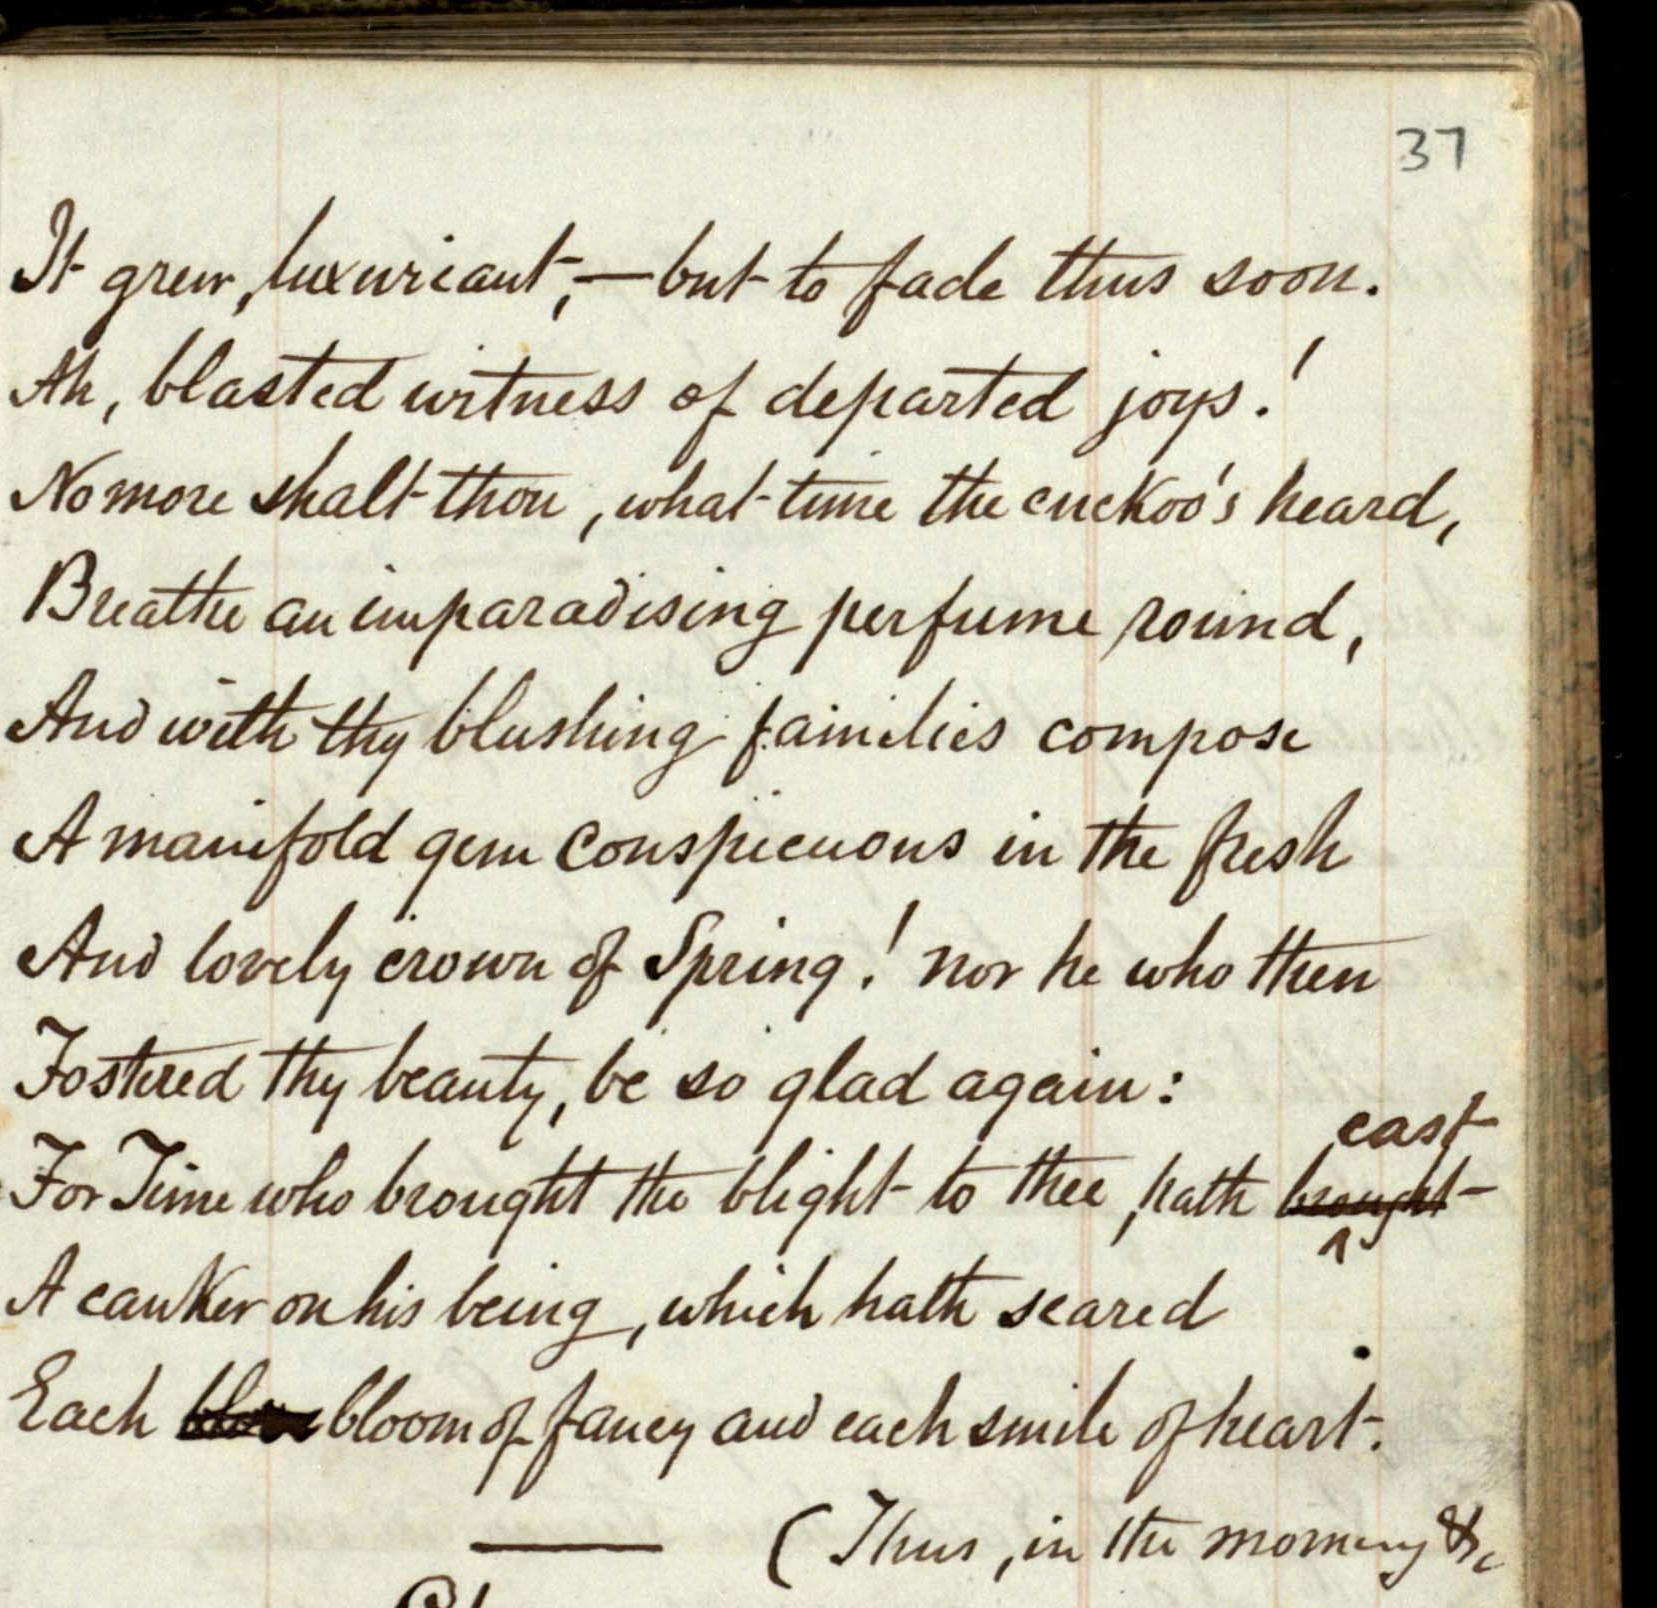 37
It grew, luxuriant,—but to fade thus soon.
Ah, blasted witness of departed joys!
No more shalt thou, what time the cuckoo's heard,
Breathe an imparadising perfume round,
And with thy blushing families compose
A manifold gem conspicuous in the fresh
And lovely crown of Spring! nor he who then
Fostered thy beauty, be so glad again:
cast
For Time who brought the blight to thee, hath brought
A canker on his being, which hath seared
Each bloom of fancy and each smile of heart.
(Thus, in the morning &c